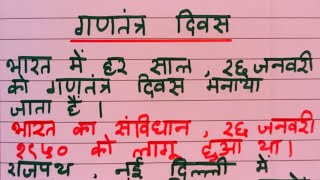 गणतंत्र दिवस
भारत में हर साल , २६ जनवरी
को गणतंत्र दिवस मनाया
जाता है ।
भारत का संविधान , २६ जनवरी
१९५० को लागू हुआ था ।
राजपथ , नई दिल्ली में